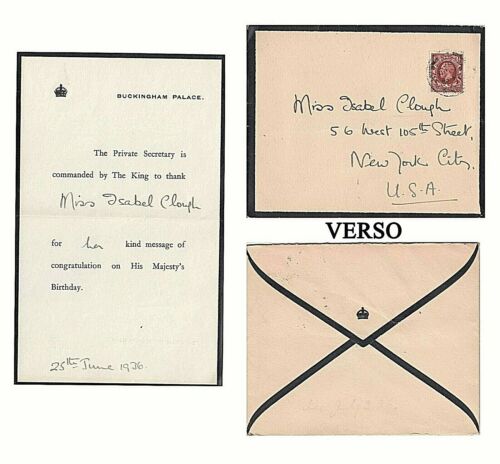 BUCKINGHAM PALACE.
The Private Secretary is
commanded by The King to thank
Miss Isabel Clough
for her kind message of
congratulation on His Majesty's
Birthday.
25th June 1936.
Miss Isabel Clough
56 West 105th Street,
New York City.
U.S.A.
VERSO